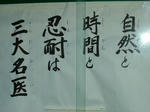 自然と
時間と
忍耐は
三大名医